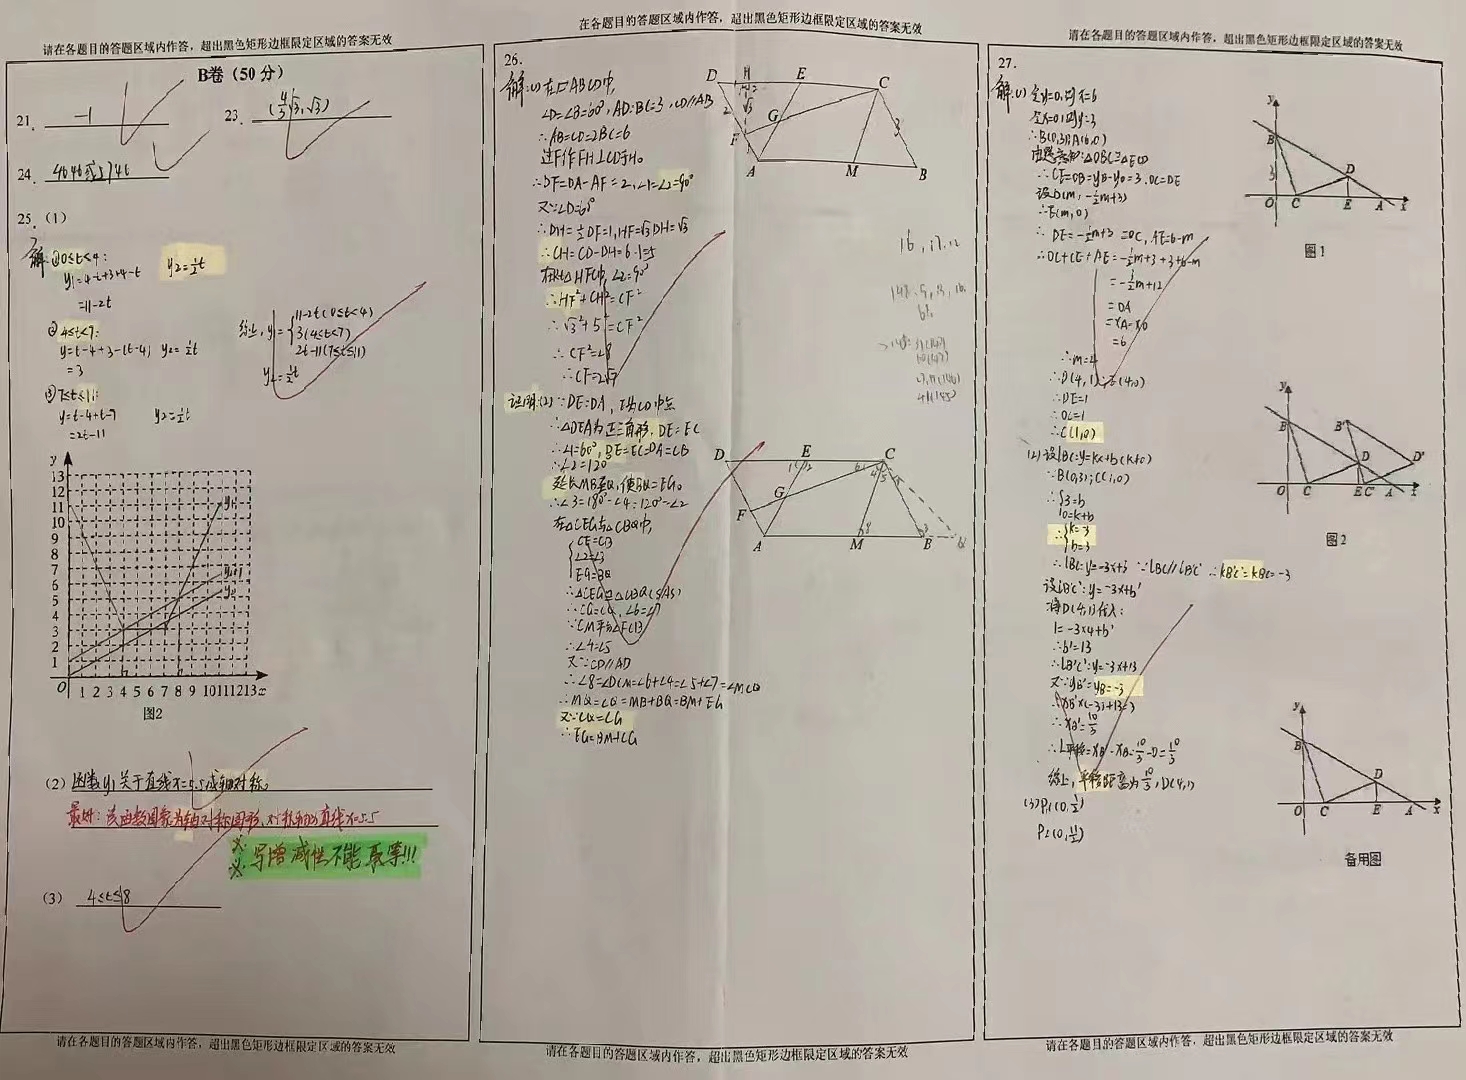 请在各题目的答题区域内作答，超出黑色矩形边框限定区域的答案无效
B卷（50 分）
21. -1
23. (4/3√3, √3)
24.
25. （1）
解:①0≤t<4:
y₁=4-t+3+4-t
=11-2t
y₂=½t
②4≤t<7:
y=t-4+3-(t-4) y₂=½t
=3
③7≤t≤11:
y=t-4+t-7 y₂=½t
=2t-11
综上, y₁= 11-2t(0≤t<4)
3(4≤t<7)
2t-11(7≤t≤11)
y₂=½t
y
13
12
11
10
9
8
7
6
5
4
3
2
1
O 1 2 3 4 5 6 7 8 9 10 11 12 13 x
y₁
y₂+1
y₂
图2
（2）函数y₁关于直线x=5.5成轴对称。
最好：该函数图象为轴对称图形，对称轴为直线x=5.5
写增减性不能取等!!!
（3） 4≤t≤8
请在各题目的答题区域内作答，超出黑色矩形边框限定区域的答案无效
在各题目的答题区域内作答，超出黑色矩形边框限定区域的答案无效
26.
解:(1)在▱ABCD中,
∠D=∠B=60°, AD=BC=3, CD∥AB
∴AB=CD=2BC=6
过F作FH⊥CD于H。
∴DF=DA-AF=2, ∠1=∠2=90°
又∵∠D=60°
∴DH=½DF=1, HF=√3DH=√3
∴CH=CD-DH=6-1=5
在Rt△HFC中, ∠2=90°
∴HF²+CH²=CF²
∴√3²+5²=CF²
∴CF²=28
∴CF=2√7
D H E C
2 √3 G 3
F
A M B
16, 17.12
证明:(2)∵DE=DA, E为CD中点
∴△DEA为正三角形, DE=EC
∴∠1=60°, DE=EC=DA=CB
∴∠2=120°
延长MB至Q, 使BQ=EG。
∴∠3=180°-∠4=120°=∠2
在△CEG与△CBQ中,
CE=CB
∠2=∠3
EG=BQ
∴△CEG≌△CBQ(SAS)
∴CG=CQ, ∠6=∠7
∵CM平分∠FCB
∴∠4=∠5
又∵CD∥AD
∴∠8=∠DCM=∠6+∠4=∠5+∠7=∠MCQ
∴MQ=CQ=MB+BQ=BM+EG
又∵CQ=CG
∴EG=BM+CG
D E C
G
F
A M B Q
请在各题目的答题区域内作答，超出黑色矩形边框限定区域的答案无效
请在各题目的答题区域内作答，超出黑色矩形边框限定区域的答案无效
27.
解:(1)令y=0, 则x=6
令x=0, 则y=3
∴B(0,3), A(6,0)
由题意知:△OBC≌△ECD
∴CE=OB=yB-yO=3, OC=DE
设D(m, -½m+3)
∴E(m,0)
∴DE=-½m+3=OC, AE=6-m
∴OC+CE+AE=-½m+3+3+6-m
=-3/2m+12
=OA
=xA-xO
=6
∴m=4
∴D(4,1), E(4,0)
∴DE=1
∴OC=1
∴C(1,0)
(2)设lBC:y=kx+b(k≠0)
∵B(0,3); C(1,0)
∴ 3=b
0=k+b
∴ k=-3
b=3
∴lBC:y=-3x+3 ∵lBC∥lB'C' ∴kB'C'=kBC=-3
设lB'C':y=-3x+b'
将D(4,1)代入:
1=-3×4+b'
∴b'=13
∴lB'C':y=-3x+13
又∵yB'=yB=-3
∴xB'=10/3
∴L平移=xB'-xB=10/3-0=10/3
综上, 平移距离为10/3, D(4,1)
(3)P₁(0,½)
P₂(0,11/2)
y
B
3
D
O C E A x
图1
y
B B'
D D'
O C E C' A x
图2
y
B
D
O C E A x
备用图
请在各题目的答题区域内作答，超出黑色矩形边框限定区域的答案无效